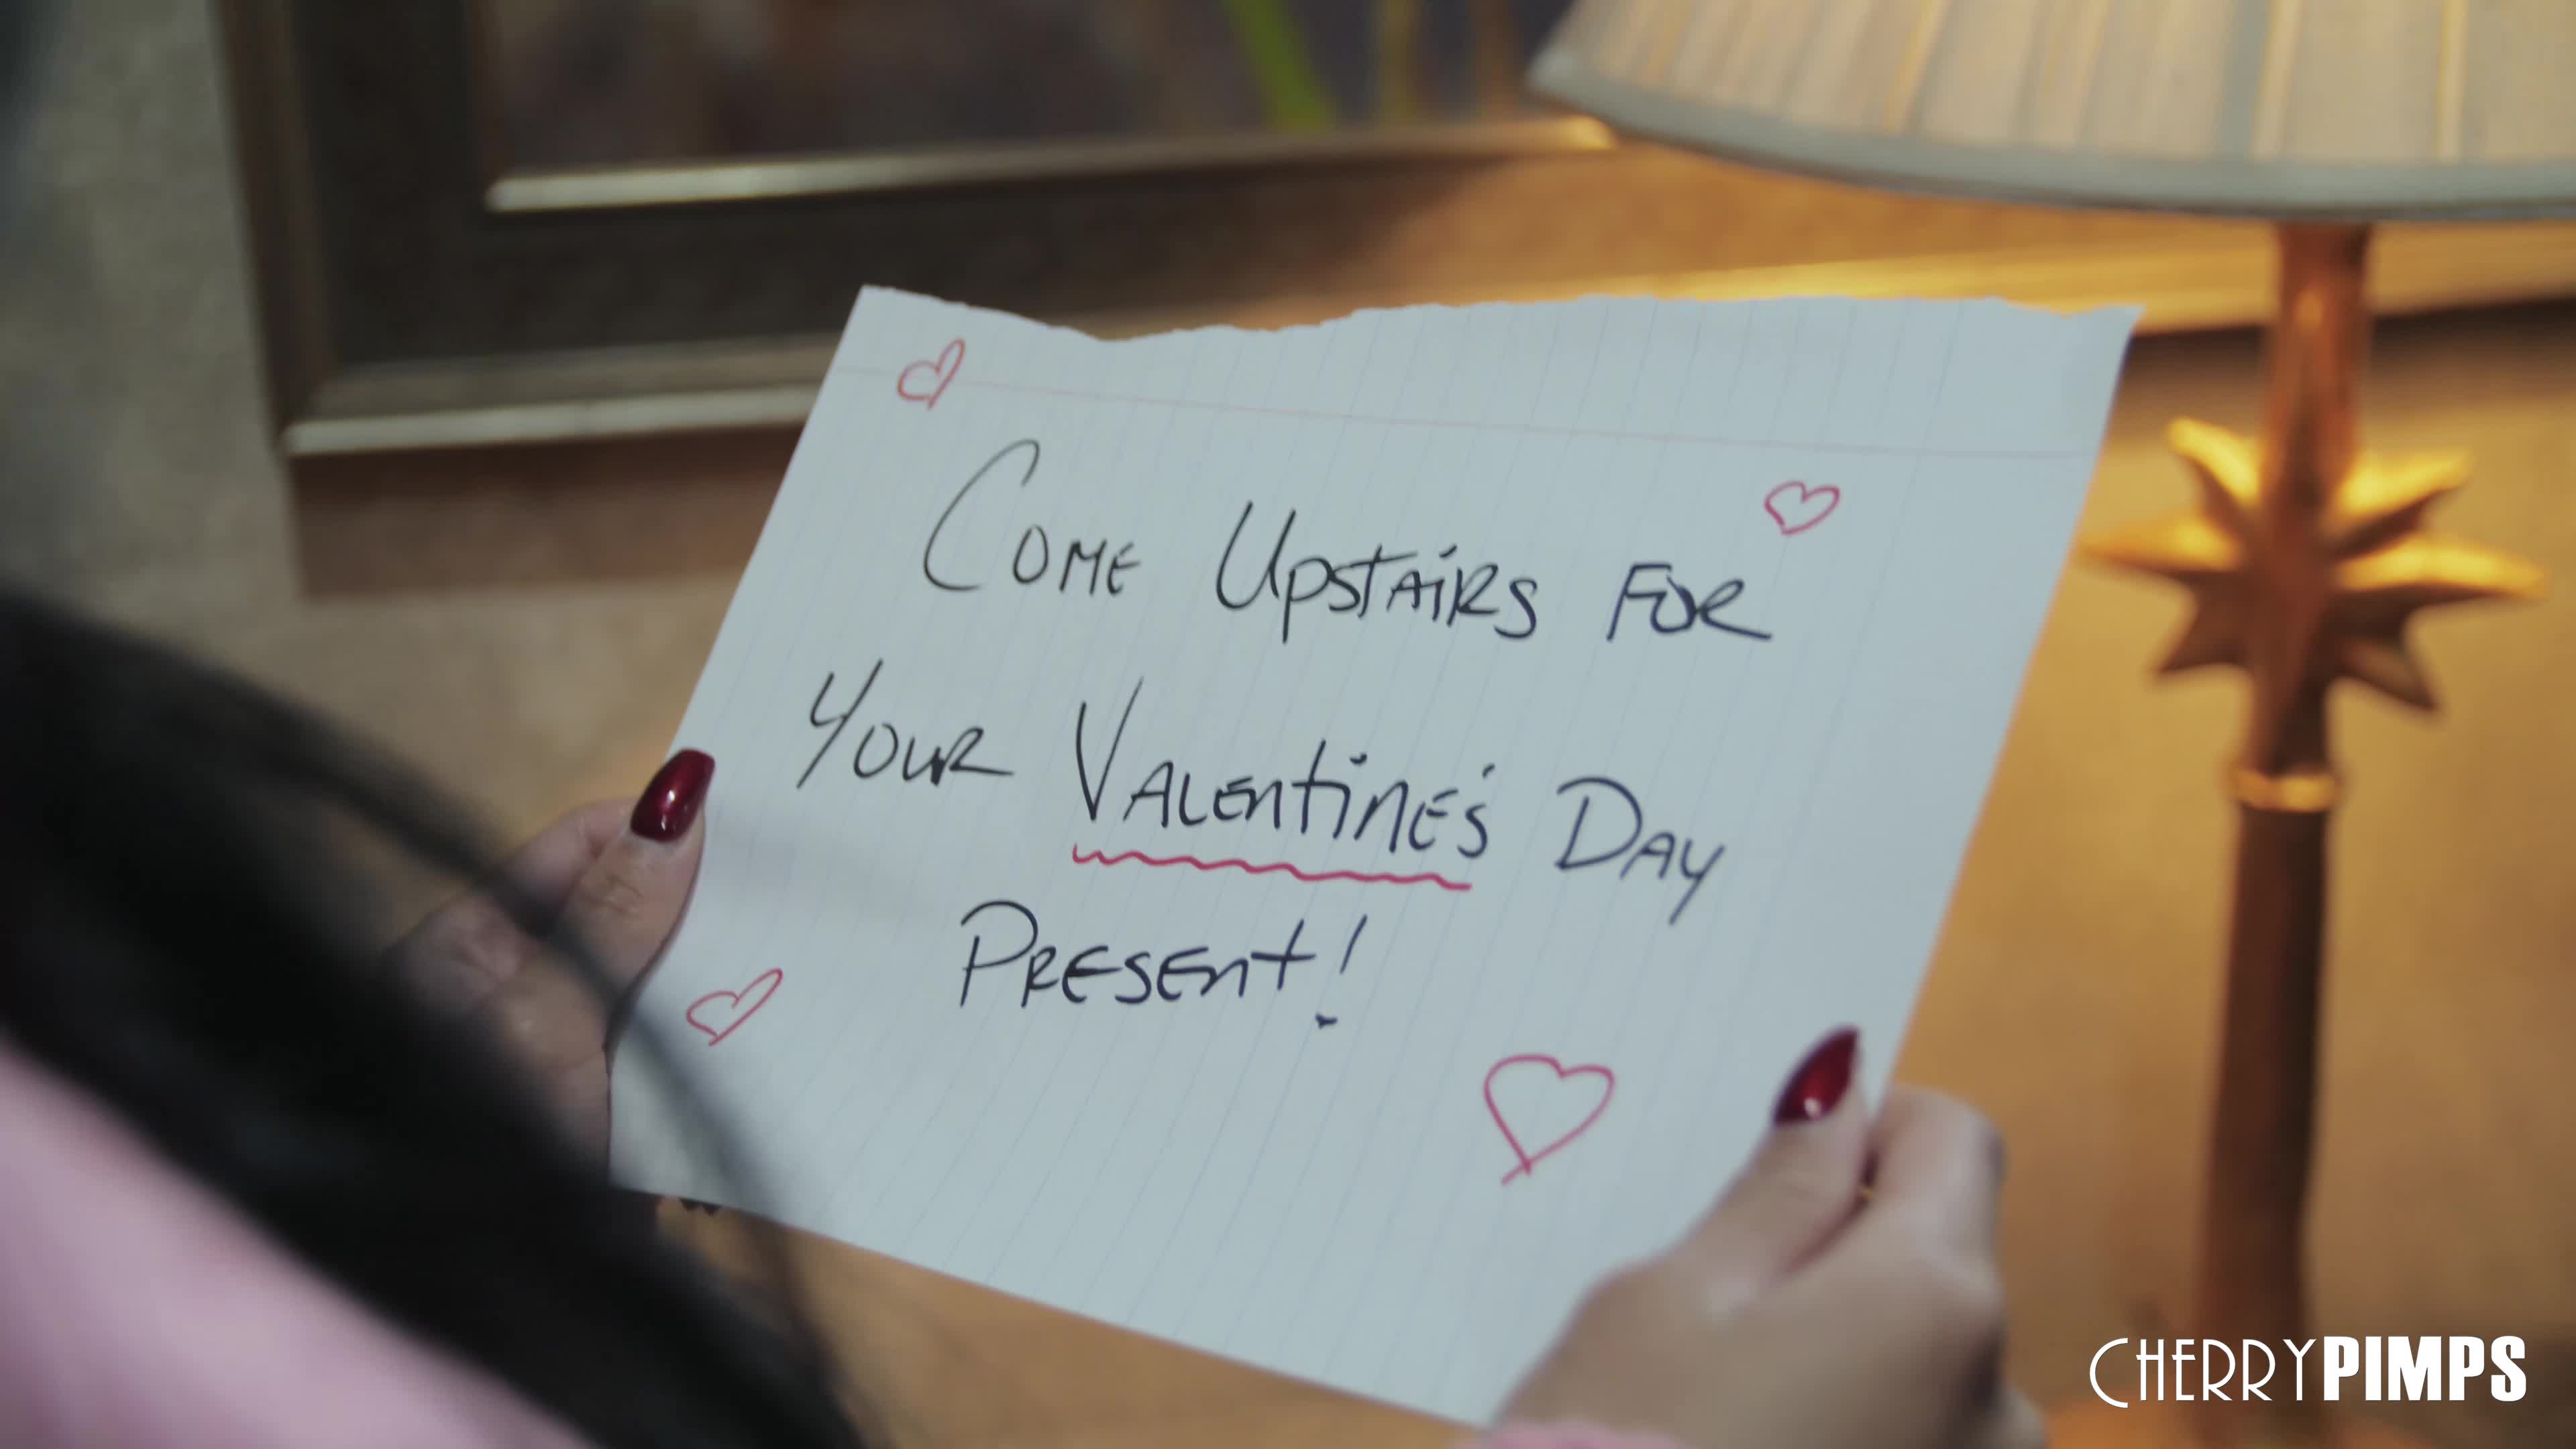 Come Upstairs for
Your Valentine's Day
Present!
CHERRYPIMPS